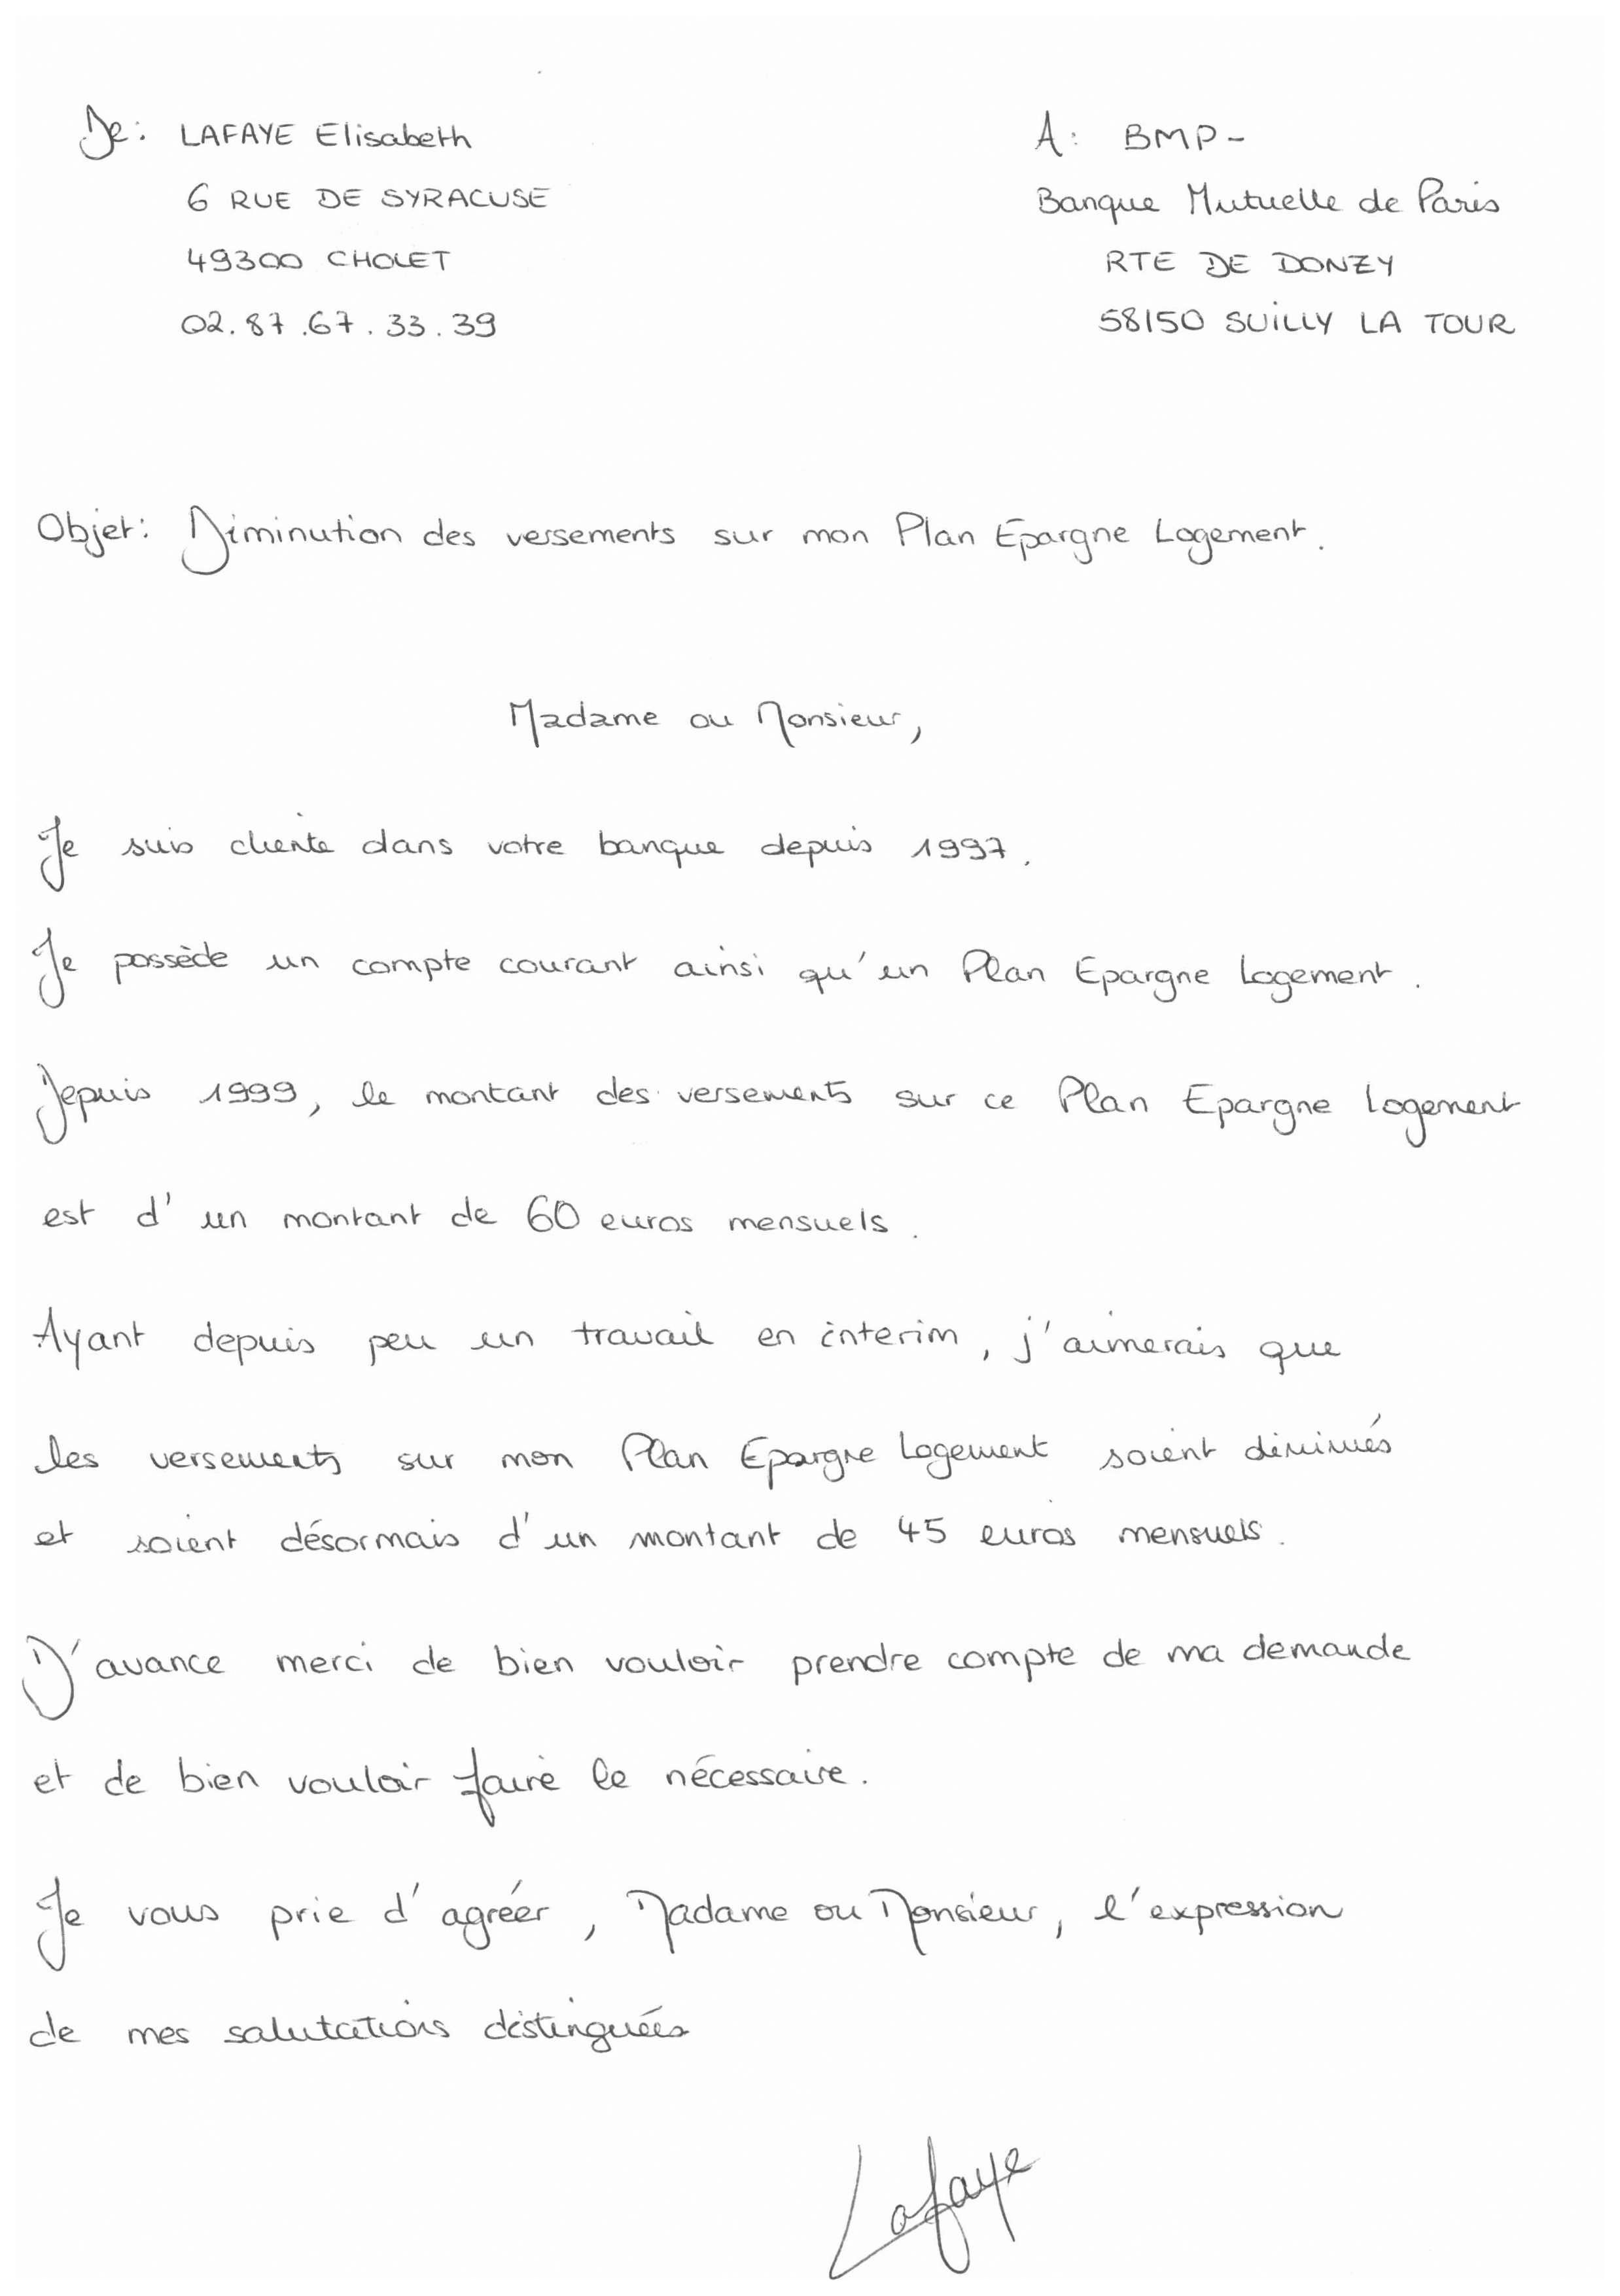 De: LAFAYE Elisabeth
6 RUE DE SYRACUSE
49300 CHOLET
02.87.67.33.39
A: BMP-
Banque Mutuelle de Paris
RTE DE DONZY
58150 SUILLY LA TOUR
Objet: Diminution des versements sur mon Plan Epargne Logement.
Madame ou Monsieur,
Je suis cliente dans votre banque depuis 1997.
Je possède un compte courant ainsi qu'un Plan Epargne Logement.
Depuis 1999, le montant des versements sur ce Plan Epargne Logement
est d'un montant de 60 euros mensuels.
Ayant depuis peu un travail en interim, j'aimerais que
les versements sur mon Plan Epargne Logement soient diminués
et soient désormais d'un montant de 45 euros mensuels.
D'avance merci de bien vouloir prendre compte de ma demande
et de bien vouloir faire le nécessaire.
Je vous prie d'agréer, Madame ou Monsieur, l'expression
de mes salutations distinguées
Lafaye